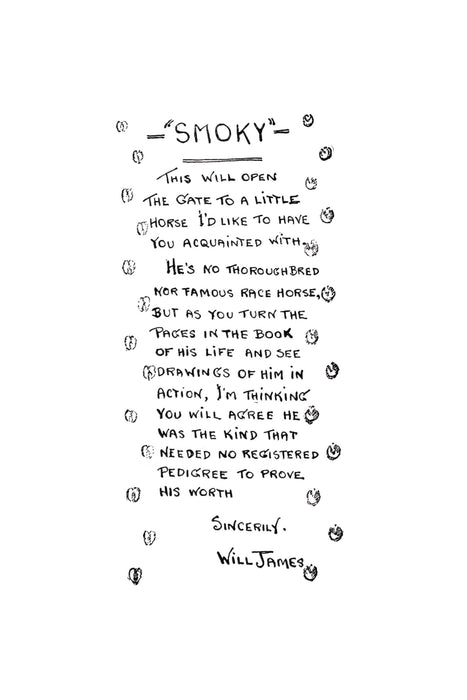 –"SMOKY"–
THIS WILL OPEN
THE GATE TO A LITTLE
HORSE I'D LIKE TO HAVE
YOU ACQUAINTED WITH.
HE'S NO THOROUGHBRED
NOR FAMOUS RACE HORSE,
BUT AS YOU TURN THE
PAGES IN THE BOOK
OF HIS LIFE AND SEE
DRAWINGS OF HIM IN
ACTION, I'M THINKING
YOU WILL AGREE HE
WAS THE KIND THAT
NEEDED NO REGISTERED
PEDIGREE TO PROVE
HIS WORTH
SINCERILY.
WILL JAMES